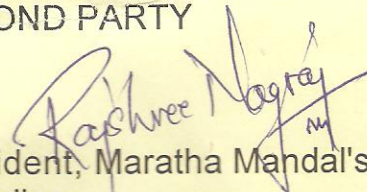 OND PARTY
Rajshree Nagraj
ident, Maratha Mandal's